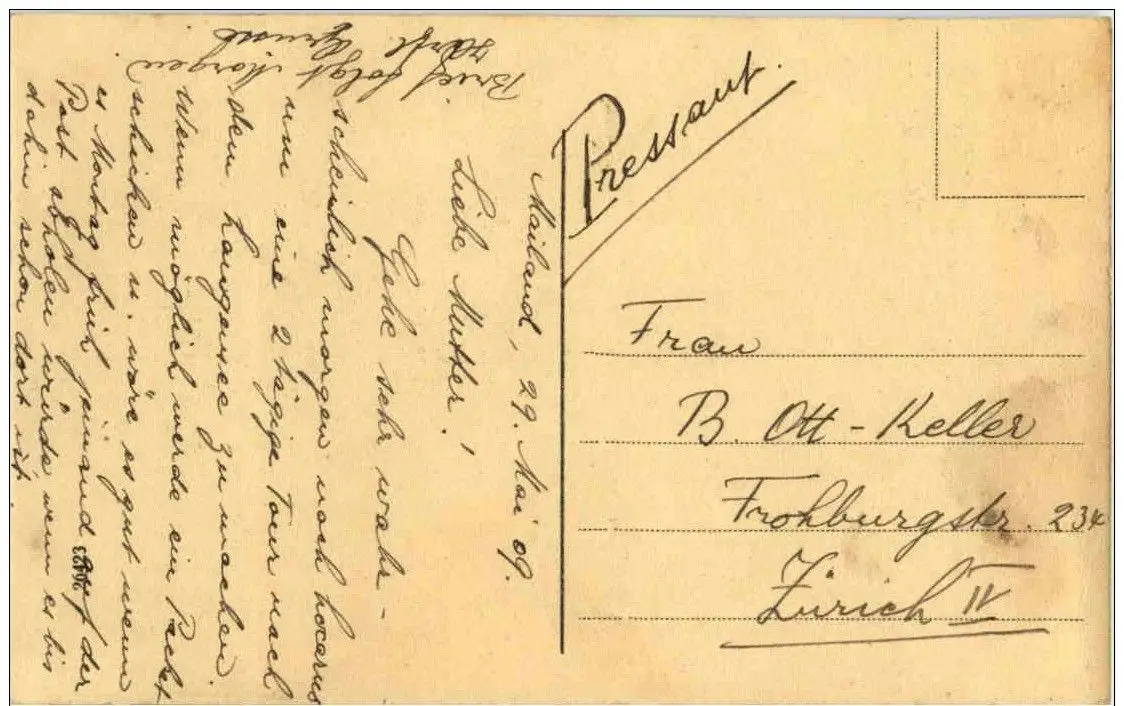 Pressant.
Frau
B. Ott-Keller
Frohburgstr. 234
Zürich IV
Mailand, 29. Mai 09.
Liebe Mutter!
Gehe sehr wahr-
scheinlich morgen nach Locarno
um eine 2 tägige Tour nach
dem Langensee zu machen.
Wenn möglich werde ein Packet
schicken u. wäre es gut wenn
es Montag früh jemand auf der
Post abholen würde wenn es bis
dahin schon dort ist.
Brief folgt Morgen
Gruss